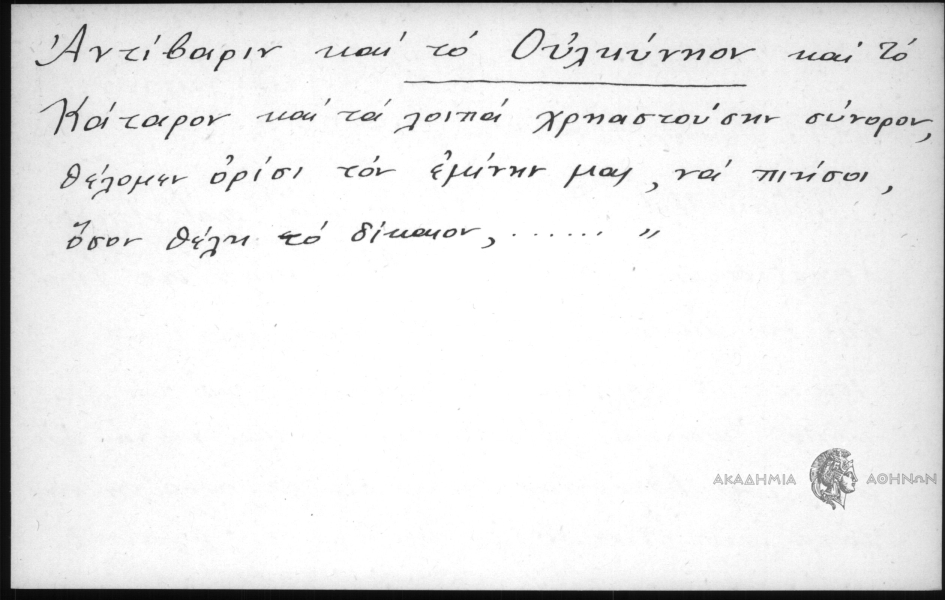 Ἀντίβαριν καί τό Οὐλκύνηον καί τό
Κάταρον καί τά λοιπά χρηαστούσην σύνορον,
θέλομεν ὁρίσι τόν ἐμίνην μας, νά πιήσοι,
ὅσον θέλη τό δίκαιον, ...... "
ΑΚΑΔΗΜΙΑ ΑΘΗΝΩΝ